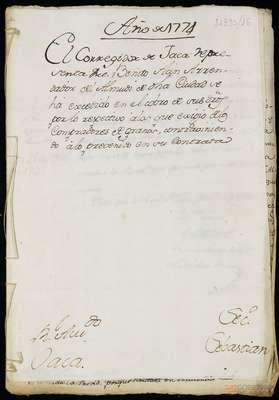 Año de 1774
El Corregidor de Jaca repre-
senta que Benito Aysa Arren-
dador del Almudi de dha Ciudad se
ha excedido en el cobro de sus
por lo respectivo a los que exigio de los
Compradores de granos, contraviniendo
a lo prevenido en su Contrata
Rl Aud
Jaca.
Sec.
Sebastian